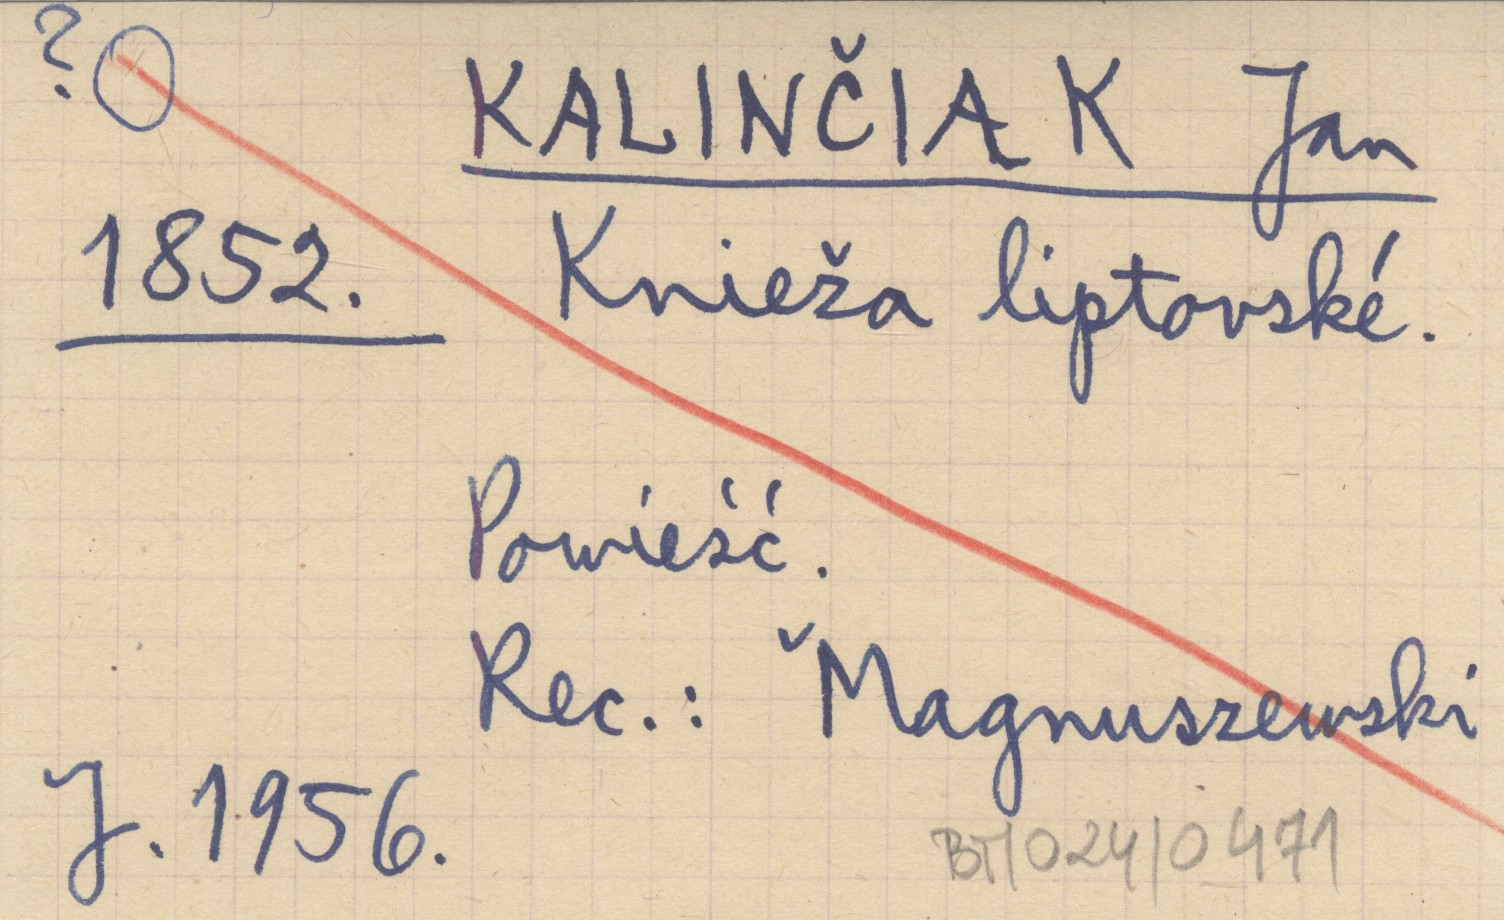 ?
KALINČIAK Jan
1852. Knieža liptovské.
Powieść.
Rec.: Magnuszewski
J. 1956.
BT/024/0471